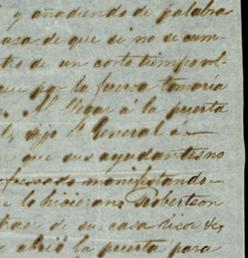 y añadiendo de palabra
de que si no se cum
de un corto tiempo vol
que por la fuerza tomaria
Al llegar á la puerta
dijo el General á
que sus ayudantes no
manifestando
lo hicieran Robertson
de su casa dice
abrió la puerta para